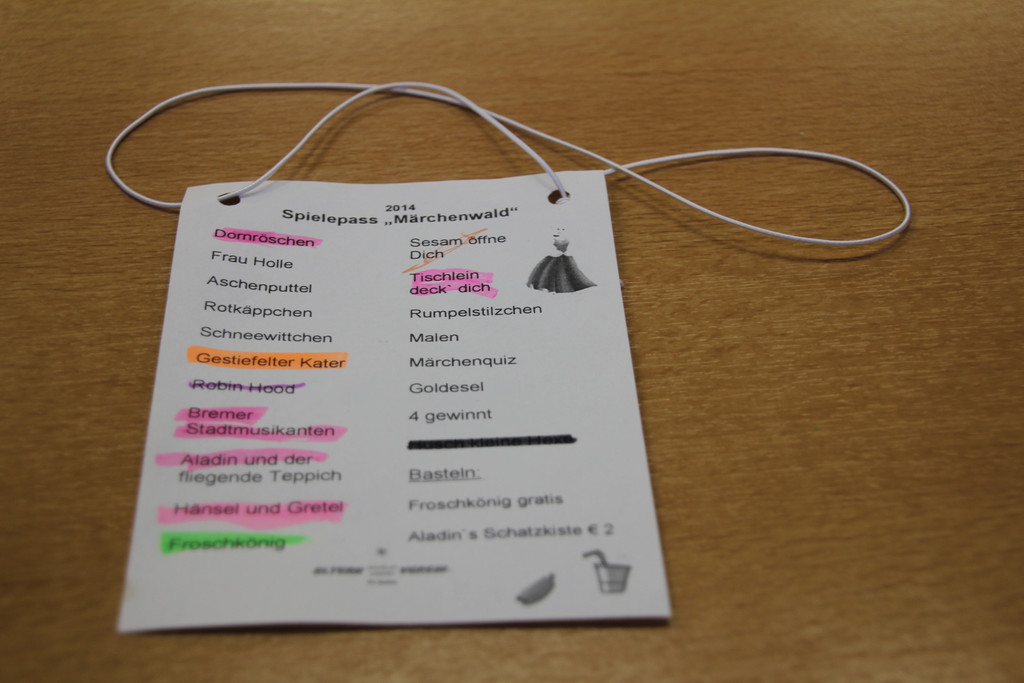 2014
Spielepass „Märchenwald“
Dornröschen
Frau Holle
Aschenputtel
Rotkäppchen
Schneewittchen
Gestiefelter Kater
Robin Hood
Bremer
Stadtmusikanten
Aladin und der
fliegende Teppich
Hänsel und Gretel
Froschkönig
Sesam öffne
Dich
Tischlein
deck` dich
Rumpelstilzchen
Malen
Märchenquiz
Goldesel
4 gewinnt
Husch kleine Hexe
Basteln:
Froschkönig gratis
Aladin`s Schatzkiste € 2